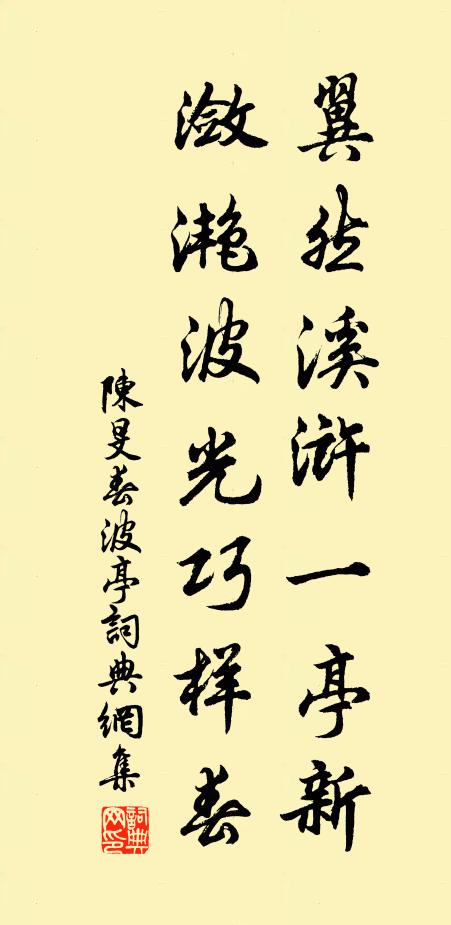 翼然溪浒一亭新
潋滟波光巧样春
陳旻春波亭詞典網集
詞典网印